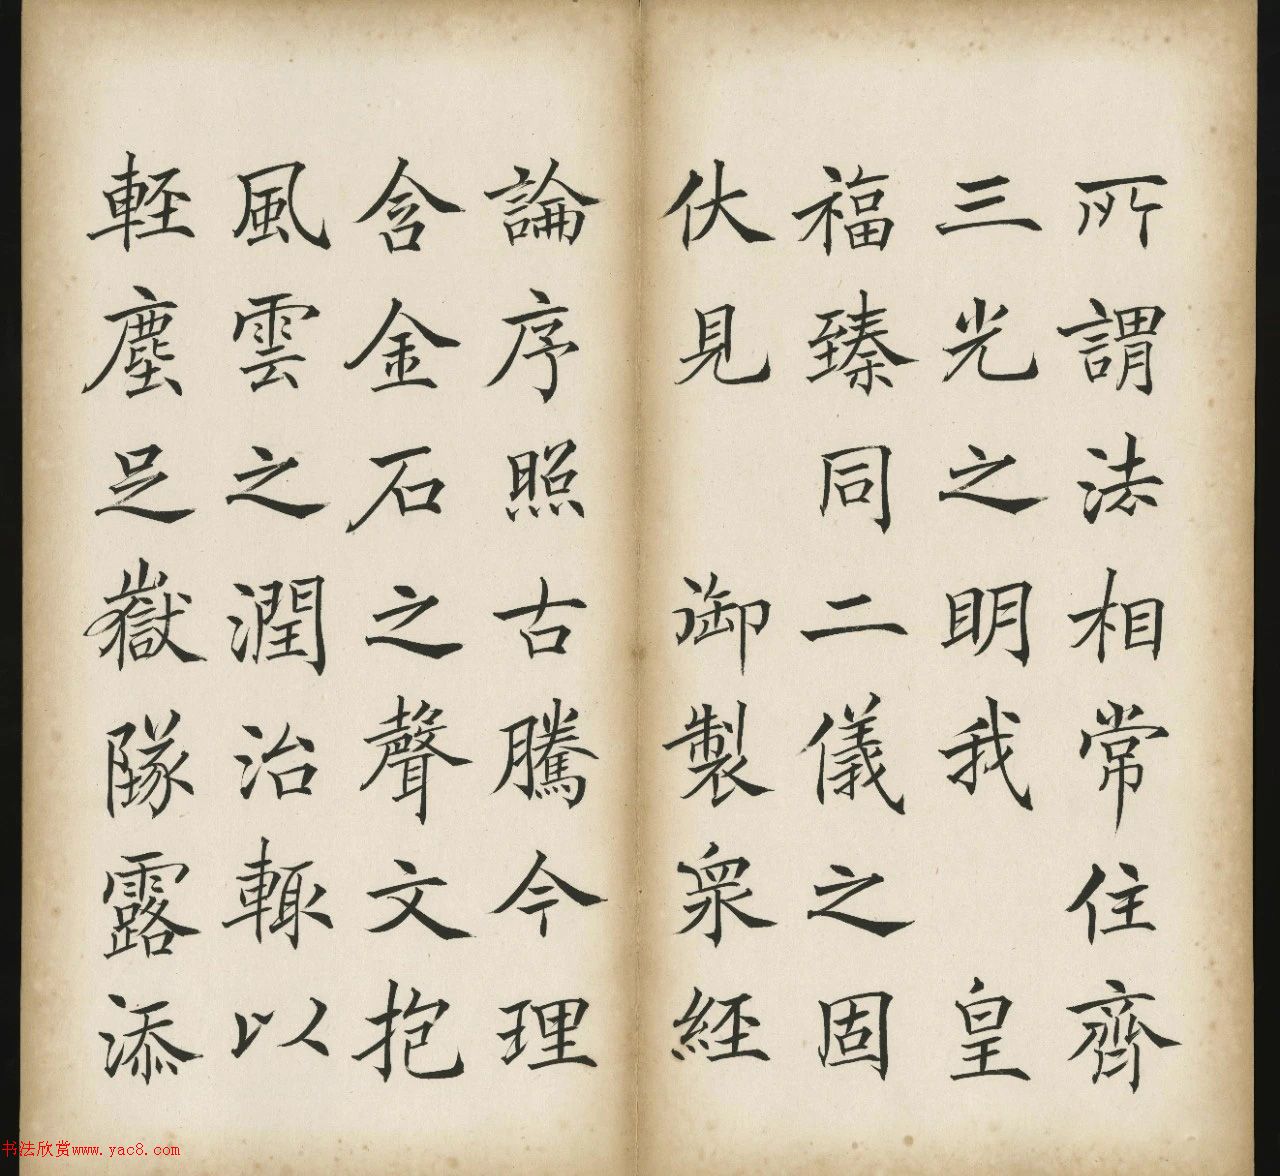 所謂法相常住齊
三光之明我　皇
福臻同二儀之固
伏見　御製衆經
論序照古騰今理
含金石之聲文抱
風雲之潤治輙以
輕塵足嶽隊露添
书法欣赏www.yac8.com